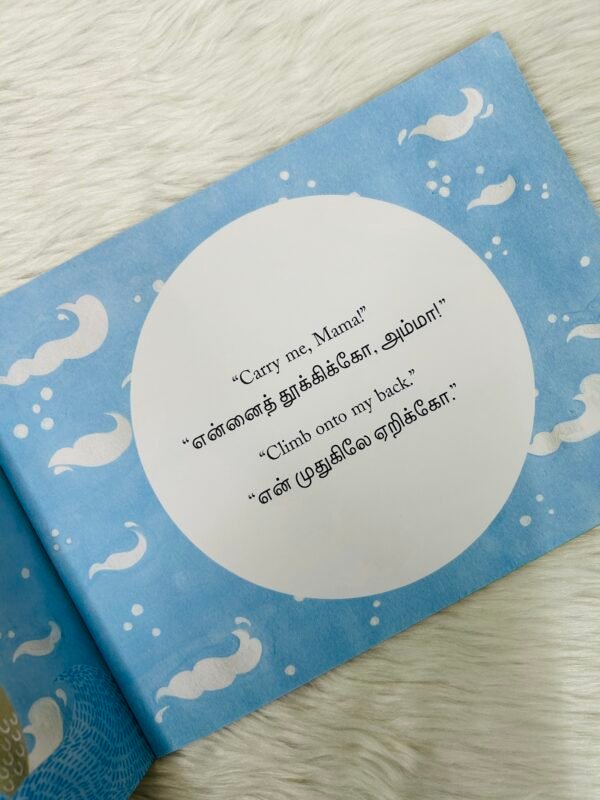 “Carry me, Mama!”
“என்னைத் தூக்கிக்கோ, அம்மா!”
“Climb onto my back.”
“என் முதுகிலே ஏறிக்கோ.”